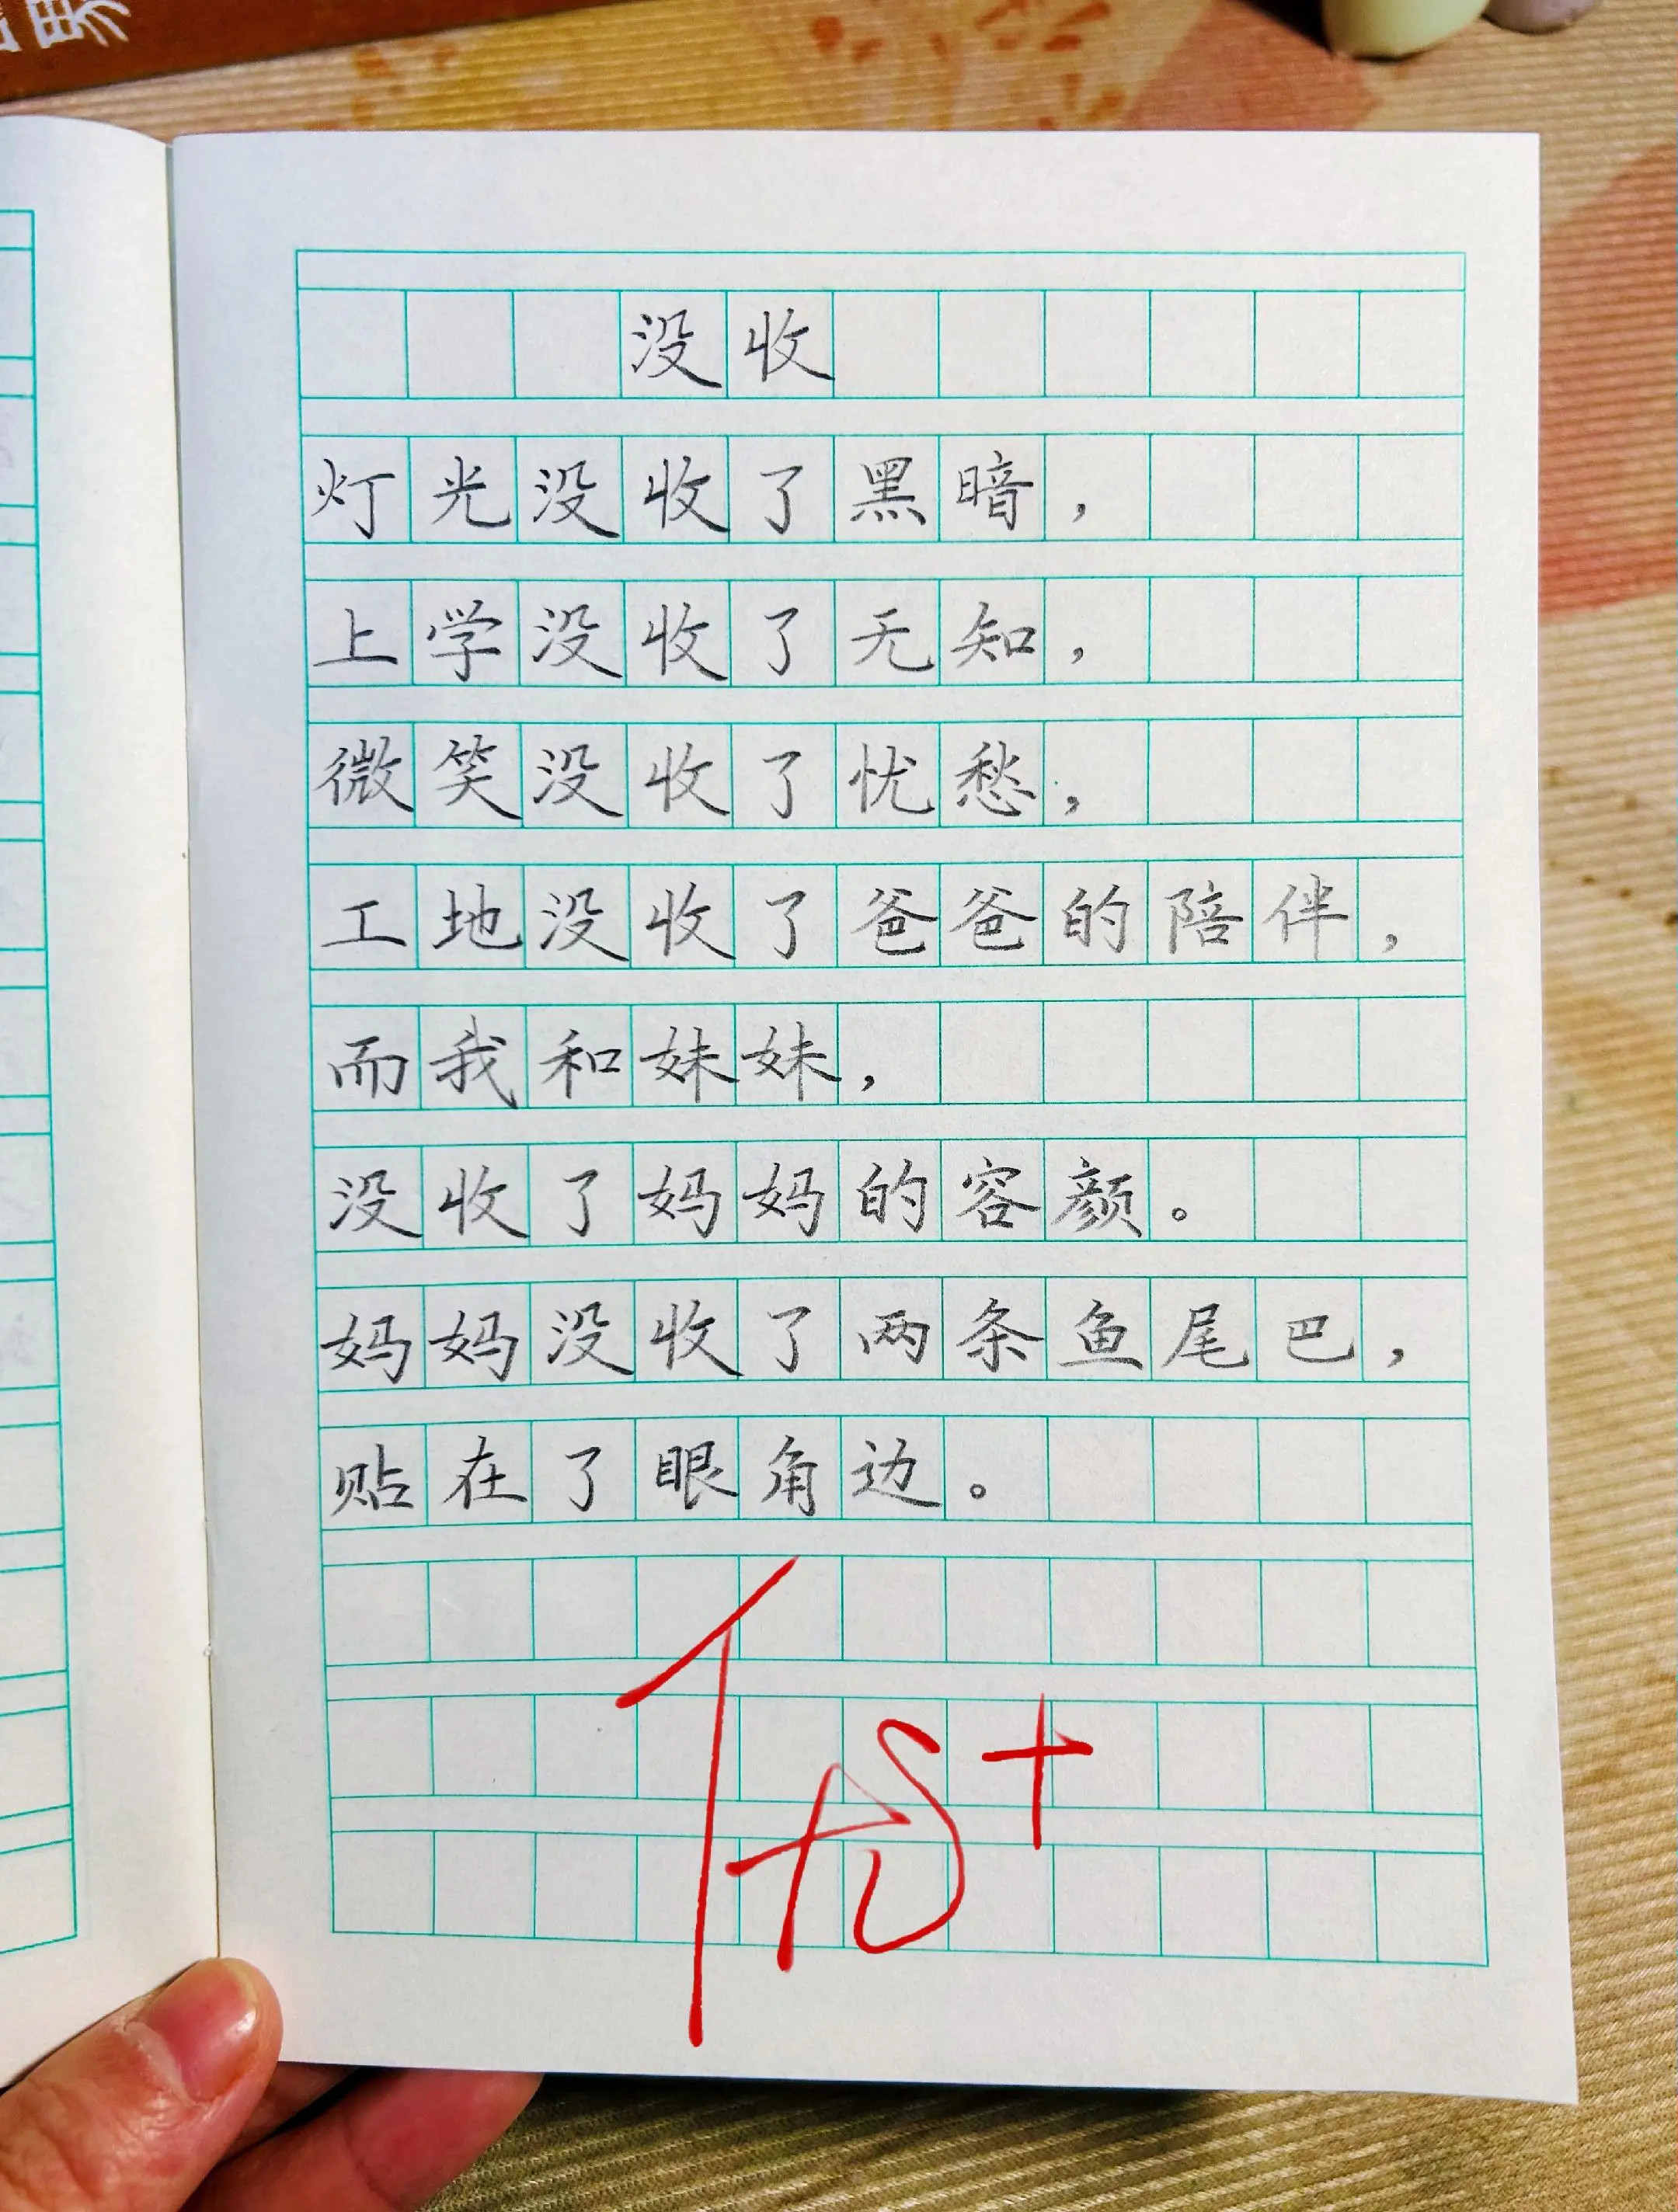 没收
灯光没收了黑暗，
上学没收了无知，
微笑没收了忧愁，
工地没收了爸爸的陪伴，
而我和妹妹，
没收了妈妈的容颜。
妈妈没收了两条鱼尾巴，
贴在了眼角边。